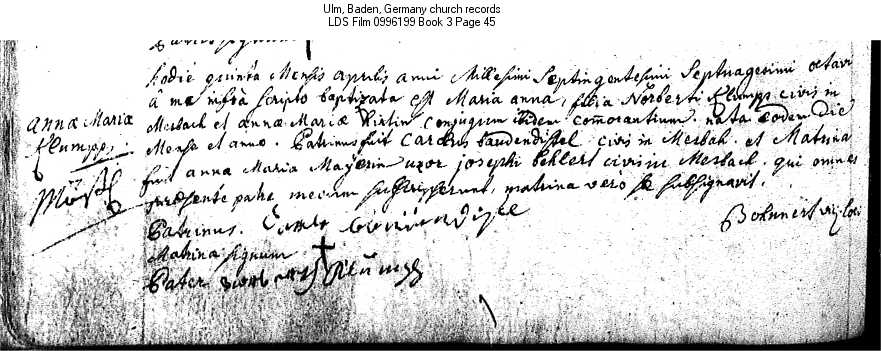 Ulm, Baden, Germany church records
LDS Film 0996199 Book 3 Page 45
hodie quinta Mensis aprilis anni Millesimi Septingentesimi Septuagesimi octavi
à me infrà scripto baptizata est Maria anna, filia Norberti flumpp civis in
annæ Mariæ
flumpp.
Mersbach et annæ Mariæ conjugum ibidem comorantium nata eodem die
Mense et anno. Patrinus fuit Carolus baudendistel civis in Mersbah. et Matrina
fuit anna Maria Mayerin uxor josephi civis in Mersbach. qui omnes
præsente patre mecum subscripserunt, matrina vero se subsignavit.
Patrinus.
Bohnnert
Matrina signum
Pater